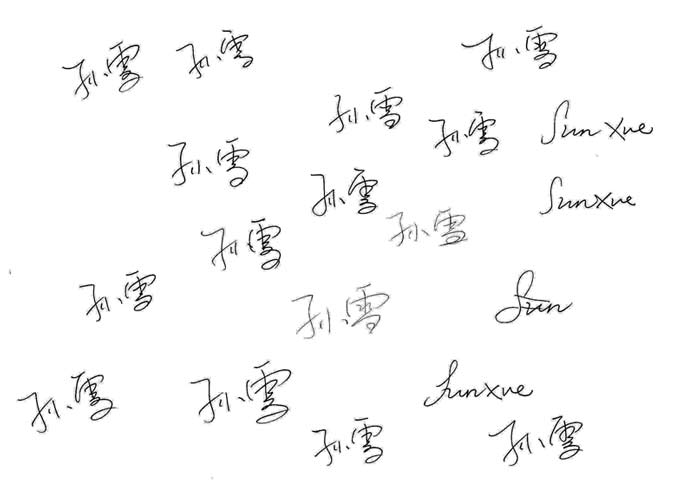 孙雪 孙雪 孙雪
孙雪 孙雪 Sun Xue
孙雪 孙雪 Sunxue
孙雪 孙雪
孙雪 孙雪 Sun
孙雪 孙雪 Sunxue
孙雪 孙雪